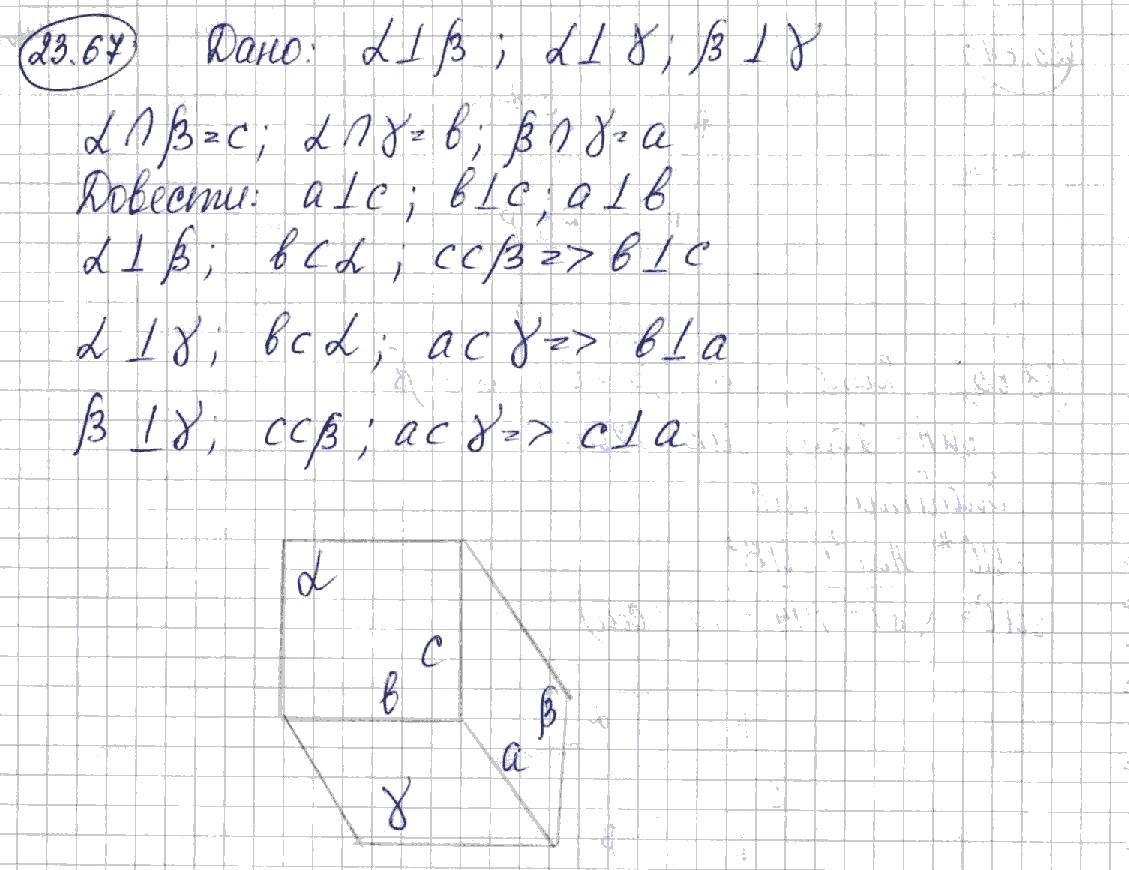 23.67 Дано: α⊥β; α⊥γ; β⊥γ
α∩β=c; α∩γ=в; β∩γ=a
Довести: a⊥c; в⊥c; a⊥в
α⊥β; в⊂α; c⊂β=> в⊥c
α⊥γ; в⊂α; a⊂γ=> в⊥a
β⊥γ; c⊂β; a⊂γ=> c⊥a
α
c
в
β
a
γ